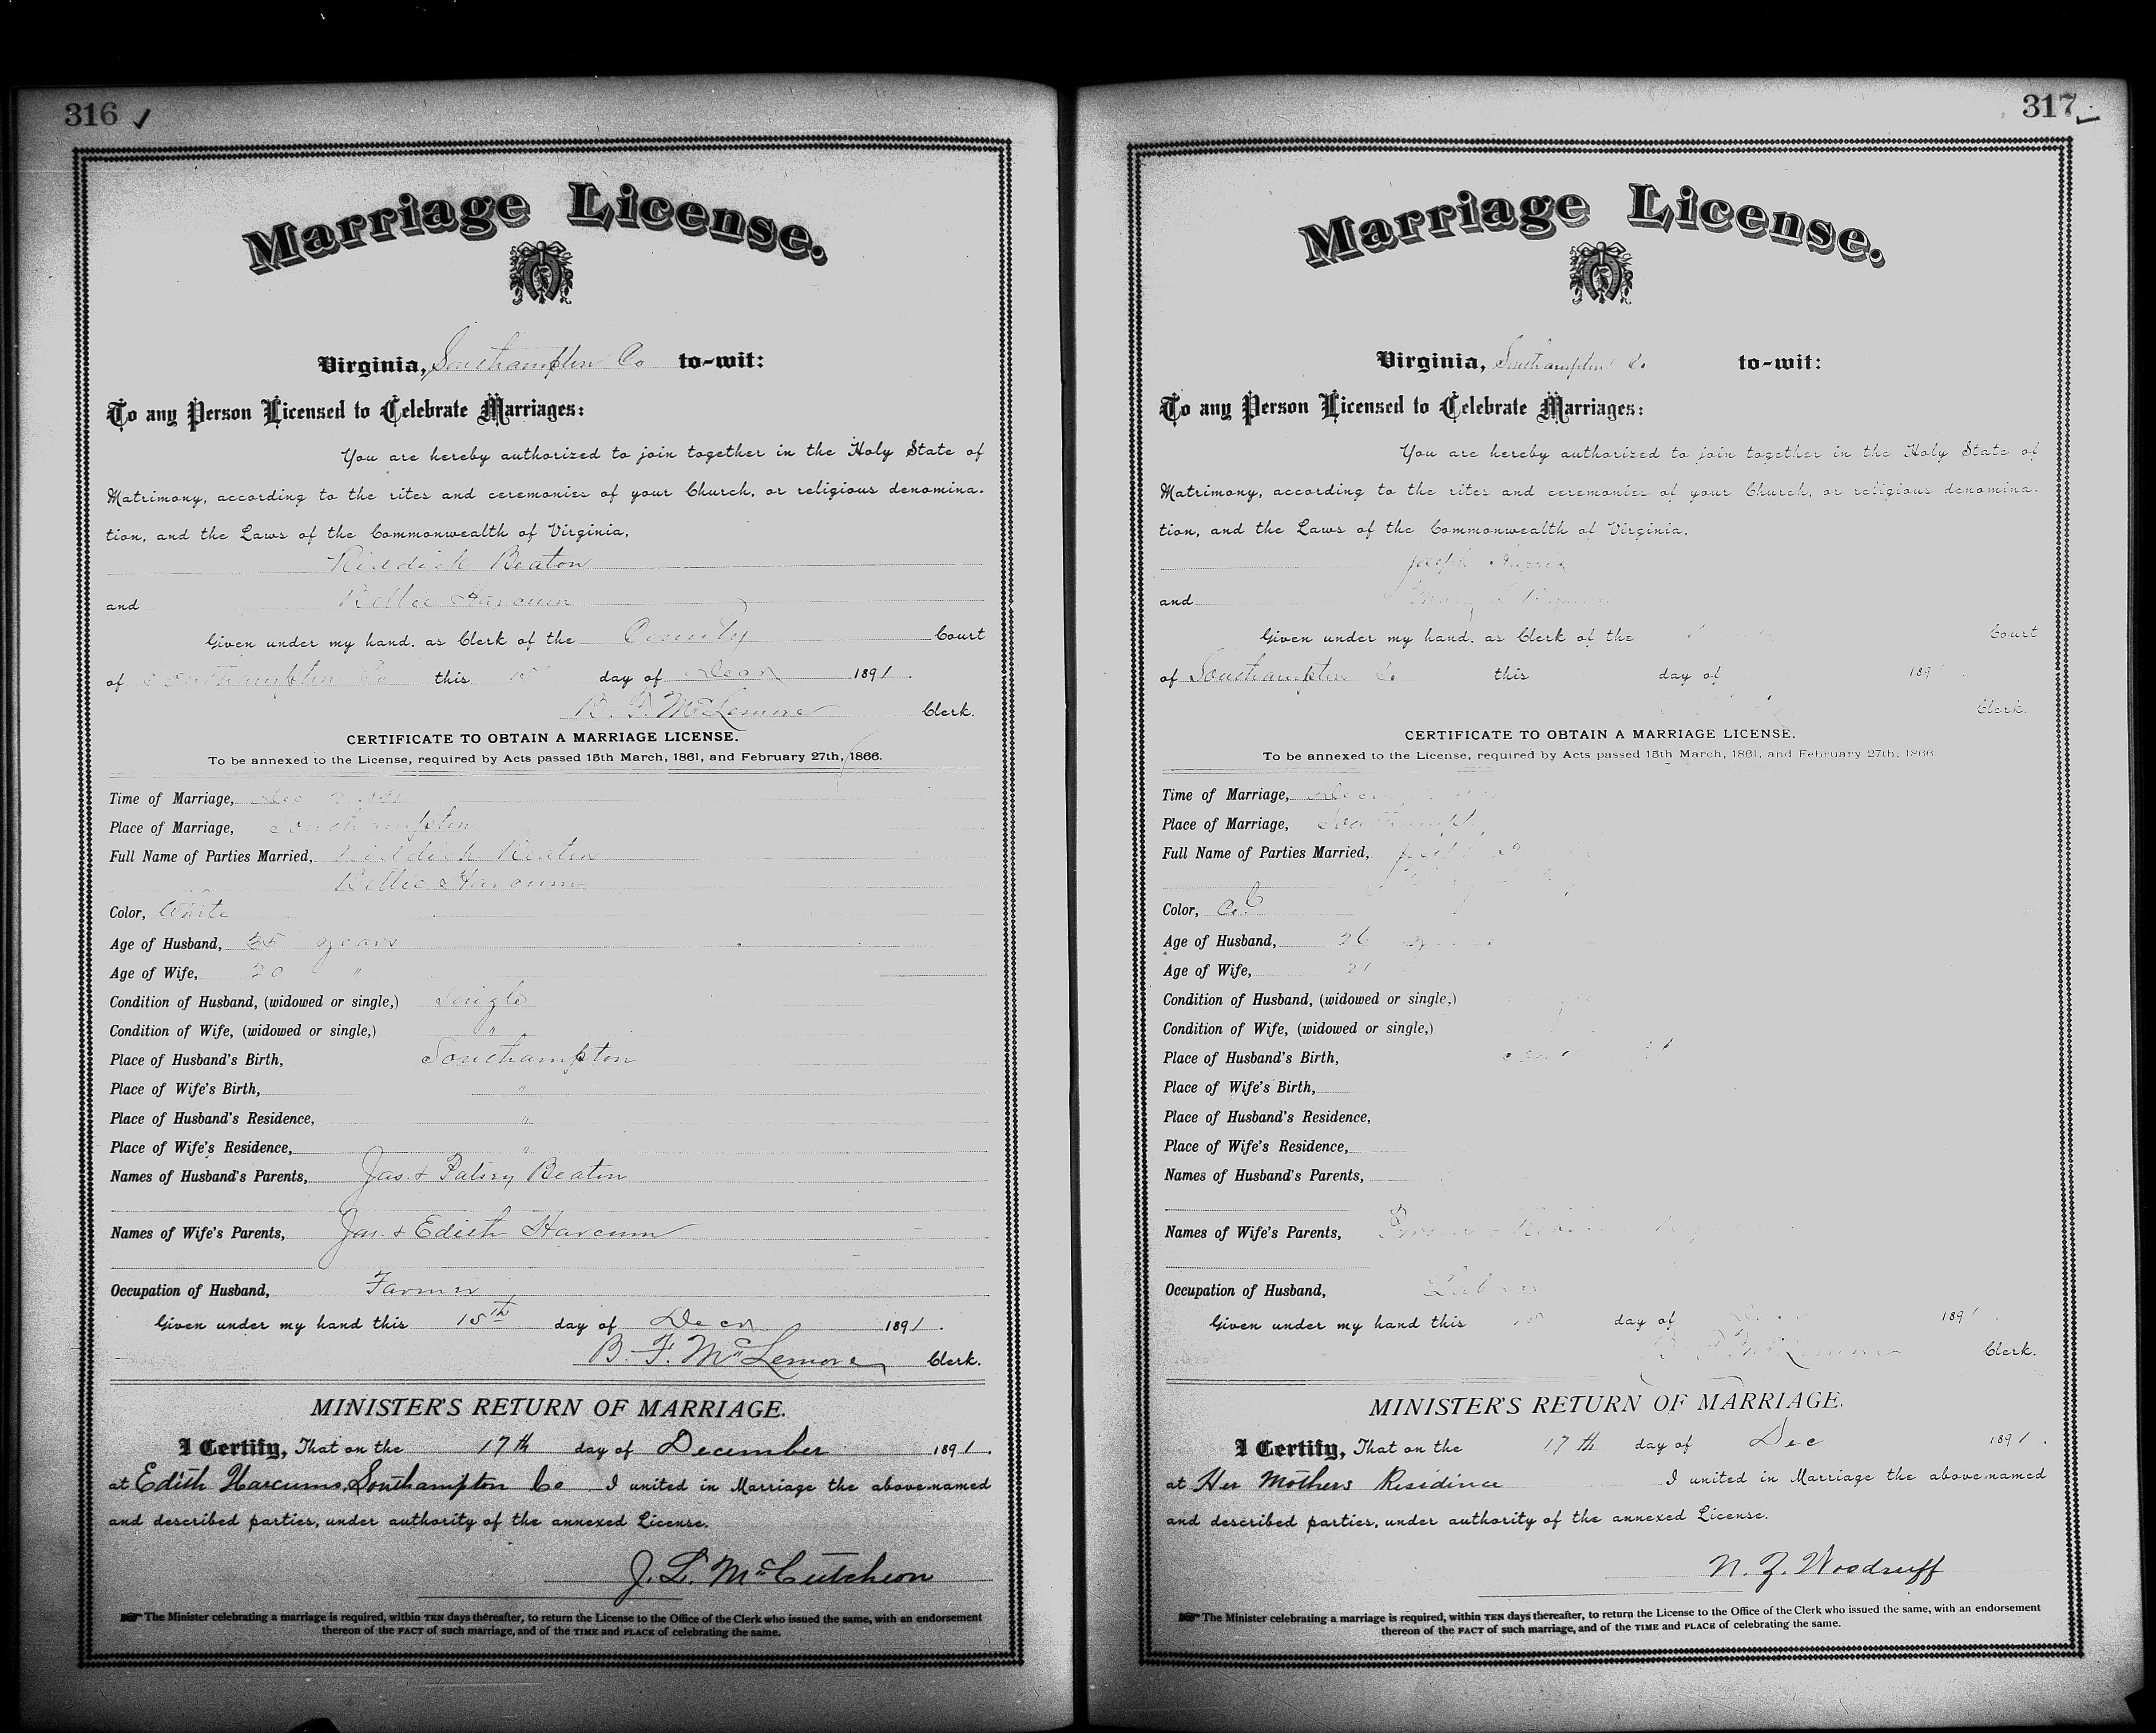 316
Marriage License.
Virginia, Southampton Co to-wit:
To any Person Licensed to Celebrate Marriages:
You are hereby authorized to join together in the Holy State of
Matrimony, according to the rites and ceremonies of your Church, or religious denomina-
tion, and the Laws of the Commonwealth of Virginia,
Riddick Beaton
and Bellie Harcum
Given under my hand, as Clerk of the County Court
of Southampton Co this 15 day of Decr 1891.
B. F. McLemore Clerk.
CERTIFICATE TO OBTAIN A MARRIAGE LICENSE.
To be annexed to the License, required by Acts passed 15th March, 1861, and February 27th, 1866.
Time of Marriage, Dec 1891
Place of Marriage, Southampton
Full Name of Parties Married, Riddick Beaton
Bellie Harcum
Color, White
Age of Husband, 35 years
Age of Wife, 20 "
Condition of Husband, (widowed or single,) Single
Condition of Wife, (widowed or single,) "
Place of Husband's Birth, Southampton
Place of Wife's Birth, "
Place of Husband's Residence, "
Place of Wife's Residence, "
Names of Husband's Parents, Jas. & Patsy Beaton
Names of Wife's Parents, Jas. & Edith Harcum
Occupation of Husband, Farmer
Given under my hand this 15th day of Decr 1891.
B. F. McLemore Clerk.
MINISTER'S RETURN OF MARRIAGE.
I Certify, That on the 17th day of December 1891.
at Edith Harcums, Southampton Co I united in Marriage the above-named
and described parties, under authority of the annexed License.
J. L. McCutcheon
The Minister celebrating a marriage is required, within TEN days thereafter, to return the License to the Office of the Clerk who issued the same, with an endorsement
thereon of the FACT of such marriage, and of the TIME and PLACE of celebrating the same.
317
Marriage License.
Virginia, Southampton Co to-wit:
To any Person Licensed to Celebrate Marriages:
You are hereby authorized to join together in the Holy State of
Matrimony, according to the rites and ceremonies of your Church, or religious denomina-
tion, and the Laws of the Commonwealth of Virginia,
Joseph
and
Given under my hand, as Clerk of the Court
of Southampton Co this day of 189
Clerk.
CERTIFICATE TO OBTAIN A MARRIAGE LICENSE.
To be annexed to the License, required by Acts passed 15th March, 1861, and February 27th, 1866
Time of Marriage, Decr
Place of Marriage, Southampt
Full Name of Parties Married,
Color, Col
Age of Husband, 26
Age of Wife, 21
Condition of Husband, (widowed or single,)
Condition of Wife, (widowed or single,)
Place of Husband's Birth,
Place of Wife's Birth,
Place of Husband's Residence,
Place of Wife's Residence,
Names of Husband's Parents,
Names of Wife's Parents,
Occupation of Husband,
Given under my hand this 15 day of 1891
Clerk.
MINISTER'S RETURN OF MARRIAGE.
I Certify, That on the 17th day of Dec 1891.
at Her Mothers Residince I united in Marriage the above-named
and described parties, under authority of the annexed License.
N. Z. Woodruff
The Minister celebrating a marriage is required, within TEN days thereafter, to return the License to the Office of the Clerk who issued the same, with an endorsement
thereon of the FACT of such marriage, and of the TIME and PLACE of celebrating the same.